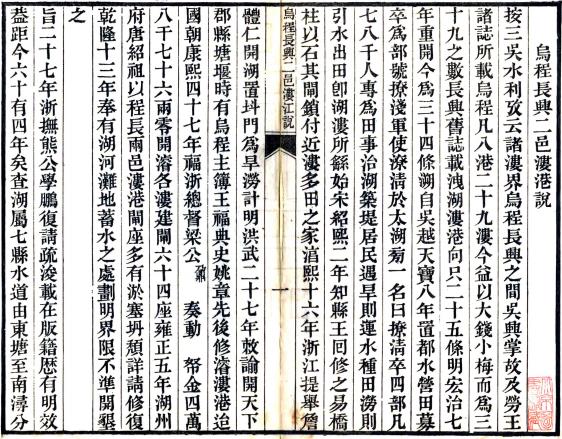 烏程長興二邑漊港說
按三吳水利攷云諸漊界烏程長興之間吳興掌故及勞王
諸誌所載烏程凡八港二十九漊今益以大錢小梅而為三
十九之數長興舊誌載洩湖漊港向只二十五條明宏治七
年重開今為三十四條溯自吳越天寶八年置都水營田募
卒為部號撩淺軍使撩清於太湖菊一名曰撩清卒四部凡
七八千人專為田事治湖築堤居民遇旱則運水種田澇則
引水出田卽湖漊所繇始宋紹熙二年知縣王回修之易橋
柱以石其閘鎖付近漊多田之家涫熙十六年浙江提舉詹
烏程長興二邑漊江說
一
體仁開湖置㪷門為旱澇計明洪武二十七年敕諭開天下
郡縣塘堰時有烏程主簿王福典史姚章先後修濬漊港迨
國朝康熙四十七年福浙總督梁公鼐奏動帑金四萬
八千七十六兩零開濬各漊建閘六十四座雍正五年湖州
府唐紹祖以程長兩邑漊港閘座多有淤塞坍頹詳請修復
乾隆十三年奉有湖河灘地蓄水之處劃明界限不準開墾
之
旨二十七年浙撫熊公學鵬復請疏浚載在版籍歷有明效
葢距今六十有四年矣查湖屬七縣水道由東塘至南潯分